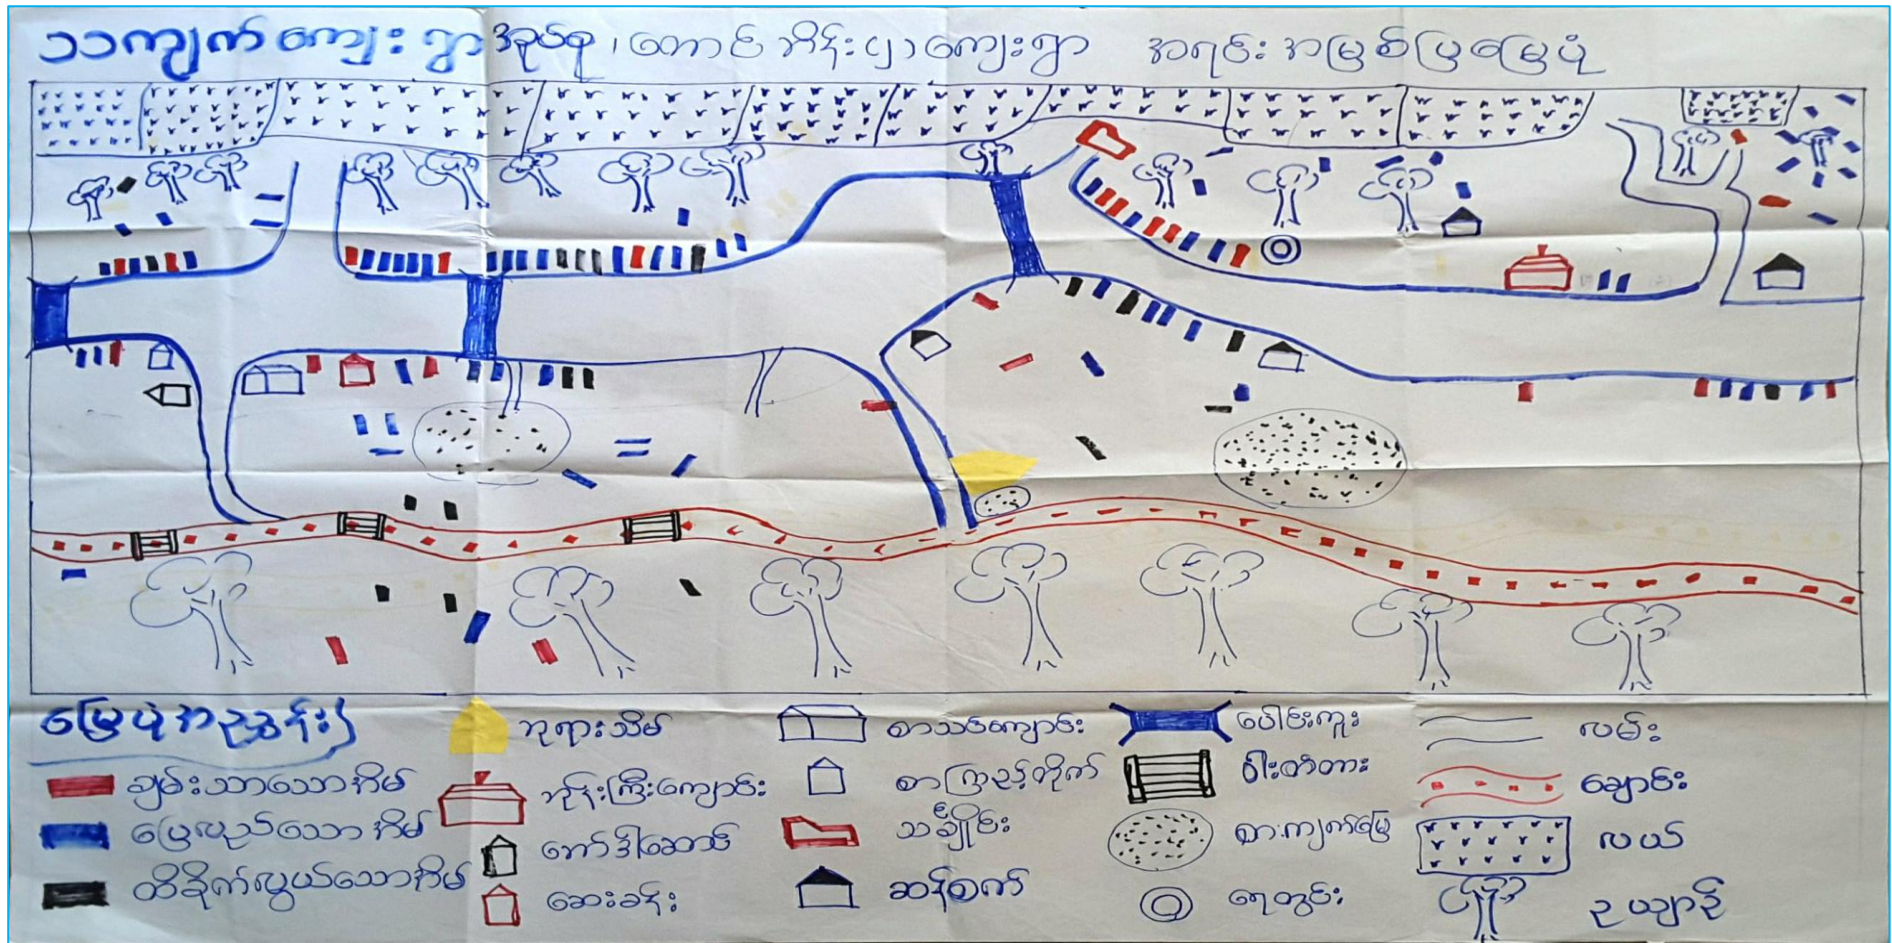 ၁၁ကျက် ကျေးရွာအုပ်စု၊ (တောင်ဘိန်း(၂)) ကျေးရွာ အရင်းအမြစ်ပြမြေပုံ
မြေပုံအညွှန်း
ချမ်းသာသောအိမ်
ပြေလည်သောအိမ်
ထိခိုက်လွယ်သောအိမ်
ဘုရားသိမ်
ဘုန်းကြီးကျောင်း
တော်ဒါဆောင်
ဆေးခန်း
စာသင်ကျောင်း
စာကြည့်တိုက်
သင်္ချိုင်း
ဆန်စက်
ပေါင်းကူး
ဝါးတံတား
စားကျက်မြေ
ရေတွင်း
လမ်း
ချောင်း
လယ်
ဥယျာဉ်